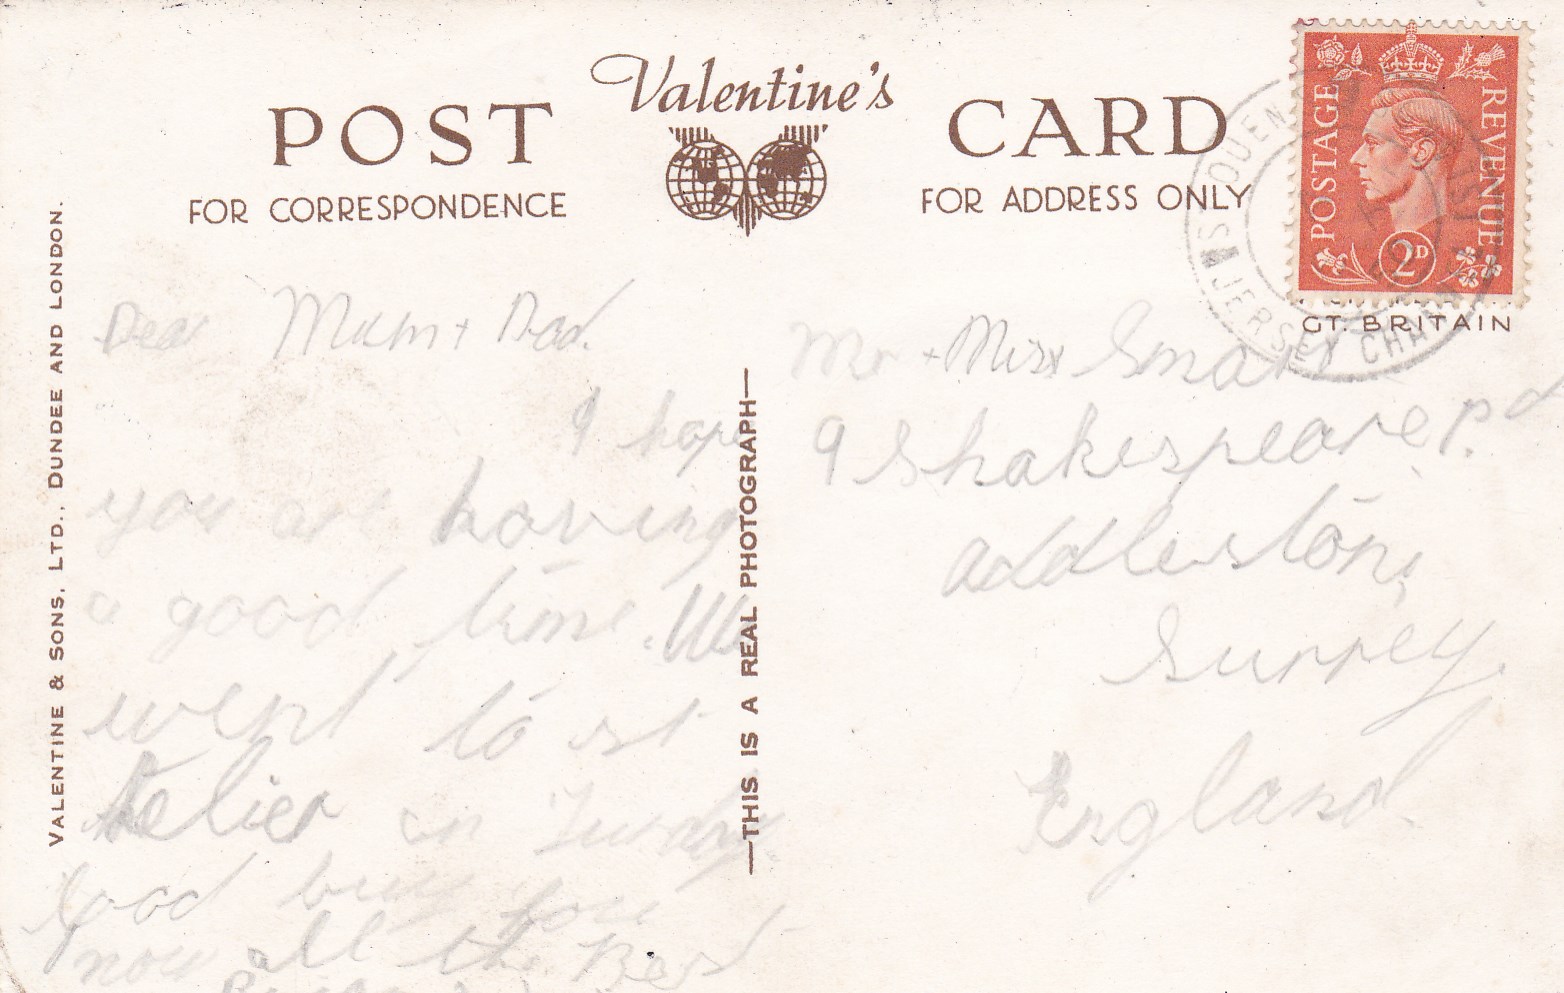 Valentine's
POST CARD
FOR CORRESPONDENCE
FOR ADDRESS ONLY
POSTAGE
REVENUE
2D
JERSEY CHAN
GT. BRITAIN
VALENTINE & SONS, LTD., DUNDEE AND LONDON.
—THIS IS A REAL PHOTOGRAPH—
Dear Mum + Dad.
I hope
you are having
a good time. We
went to st
Helier on
Good buy for
now all the Best
Mr + Mrs Smart
9 Shakespeare Rd
Addlestone
Surrey.
England.